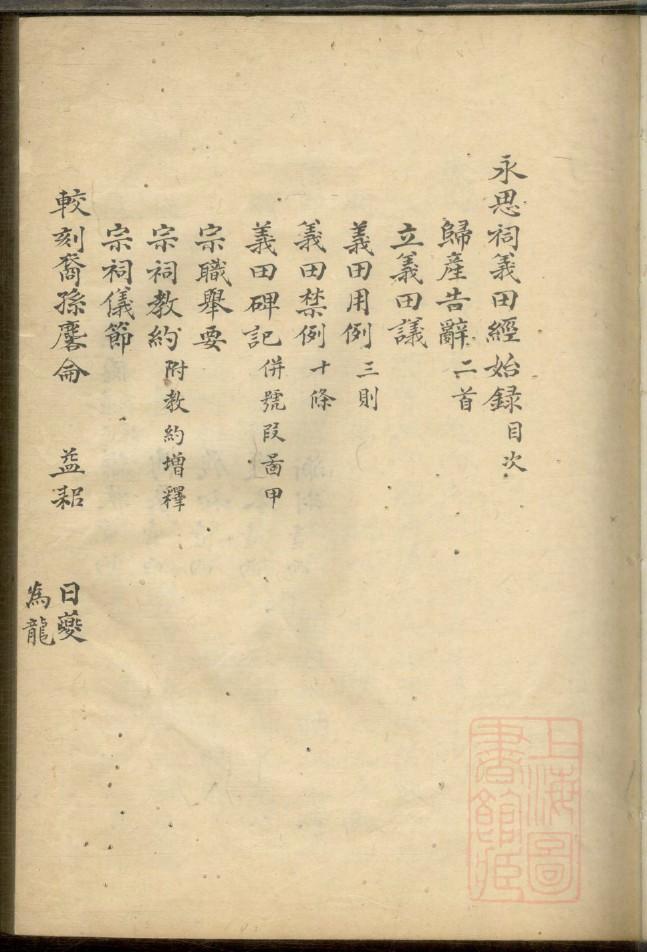 永思祠義田經始録目次
歸產告辭二首
立義田議
義田用例三則
義田禁例十條
義田碑記併號段畐甲
宗職舉要
宗祠教約附教約增釋
宗祠儀節
較刻裔孫麐侖 益耜 日夔 為龍
上海圖書館臧